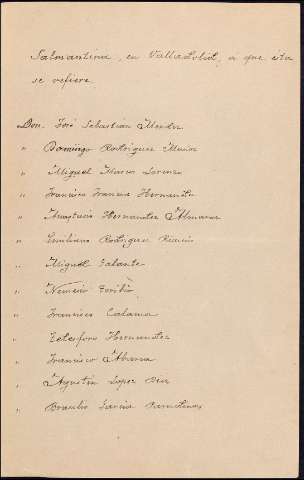 Salmantina, en Valladolid, a que ésta
se refiere.
Don. José Sebastián Méndez
" Domingo Rodríguez
" Miguel Marcos Lorenzo
" Francisco Francia Hernández
" Anastasio Hernández Almaraz
" Emiliano Rodríguez
" Miguel Galante
" Nemesio Toribio
" Francisco Calama
" Telesforo Hernández
" Francisco Abarca
" Agustín López
" Braulio García